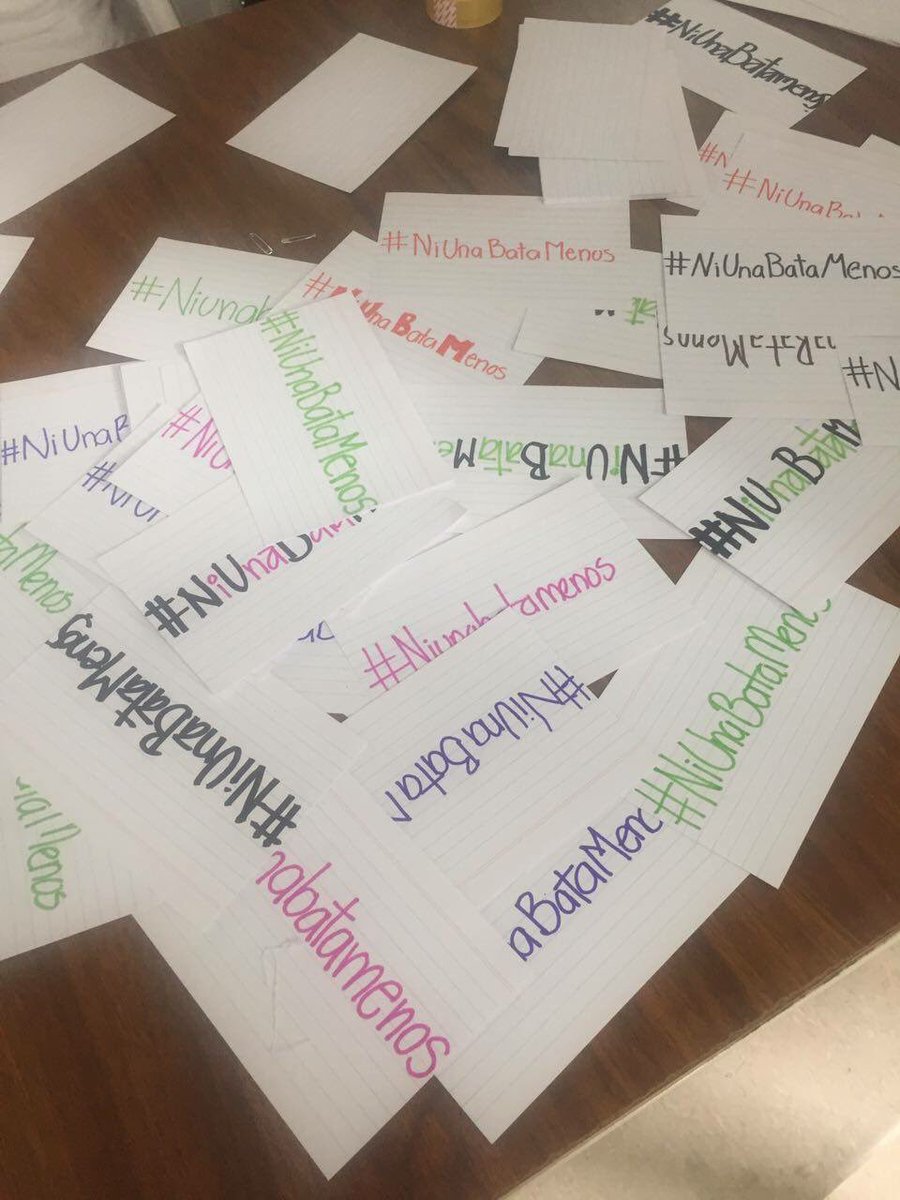 #NiUnaBatamenos
#N
#NiUnaBa
#NiUnaBataMenos
#NiUnaBataMenos
#Niunab
#NiUnaBataMenos
aBataMenos
#N
#NiUnaBataMenos
#NiUnaB
#NiU
#NiU
#NiUnaBataMe
#NiUnaBataM
#NiUnaBa
taMenos
#Niunabatamenos
#NiUnaBataMenos
#NiUnaBata
#NiUnaBataMeno
aBataMeno
Menos
nabatamenos